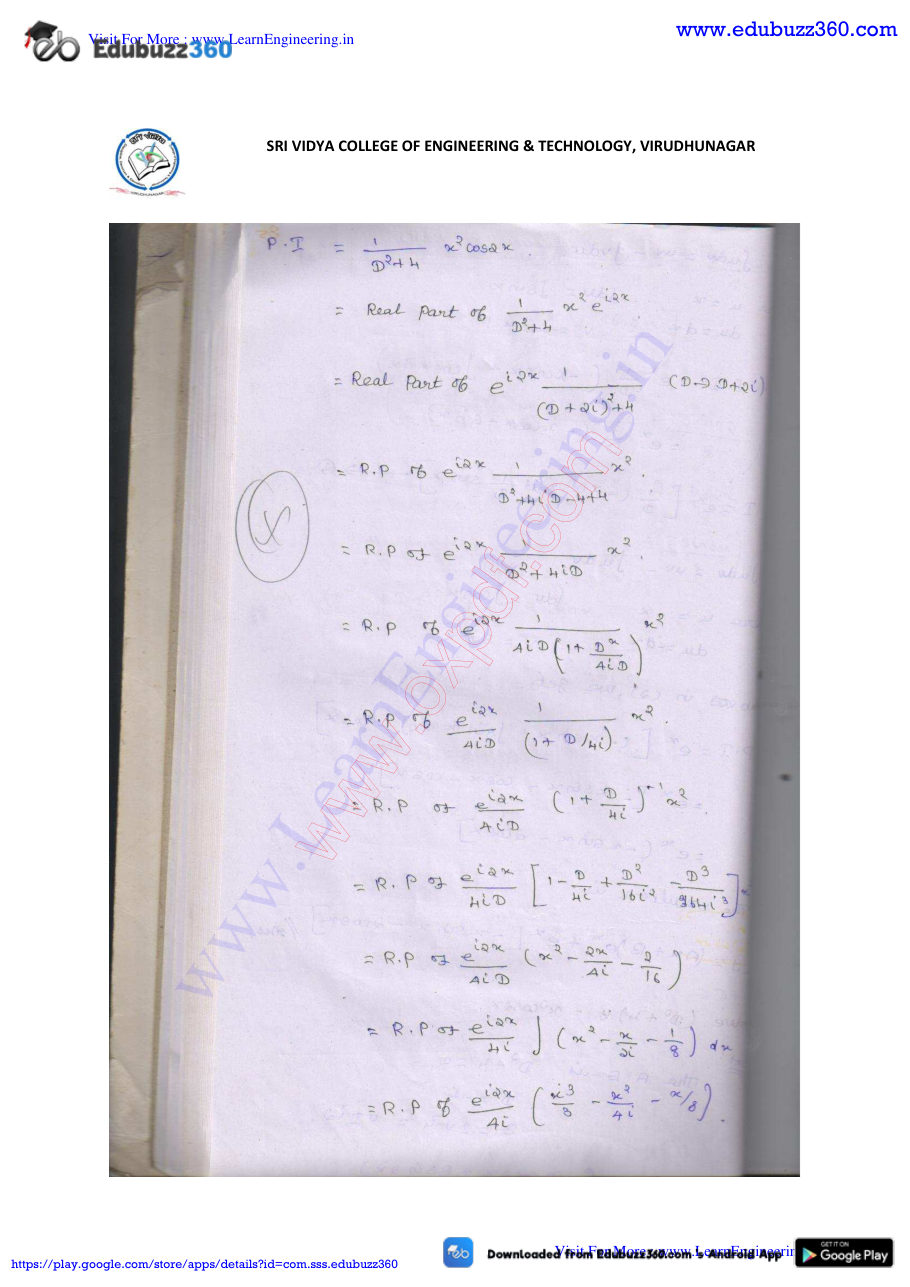 Visit For More : www.LearnEngineering.in
Edubuzz360
www.edubuzz360.com
SRI VIDYA COLLEGE OF ENGINEERING & TECHNOLOGY, VIRUDHUNAGAR
P.I = 1/(D²+4) x² cos2x.
= Real part of 1/(D²+4) x² e^(i2x).
= Real Part of e^(i2x) 1/((D+2i)²+4) (D→D+2i)
= R.P of e^(i2x) 1/(D²+4iD-4+4) x².
= R.P of e^(i2x) 1/(D²+4iD) x².
= R.P of e^(i2x) 1/(4iD(1+D²/4iD)) x²
= R.P of e^(i2x)/4iD 1/(1+D/4i) x².
= R.P of e^(i2x)/4iD (1+D/4i)⁻¹ x².
= R.P of e^(i2x)/4iD [1 - D/4i + D²/16i² - D³/64i³] x
= R.P of e^(i2x)/4iD (x² - 2x/4i - 2/16)
= R.P of e^(i2x)/4i ∫ (x² - x/2i - 1/8) dx
= R.P of e^(i2x)/4i (x³/3 - x²/4i - x/8).
www.LearnEngineering.in
www.bxpdf.com
https://play.google.com/store/apps/details?id=com.sss.edubuzz360
Downloaded from Edubuzz360.com 's Android App
Visit For More : www.LearnEngineerin
GET IT ON
Google Play